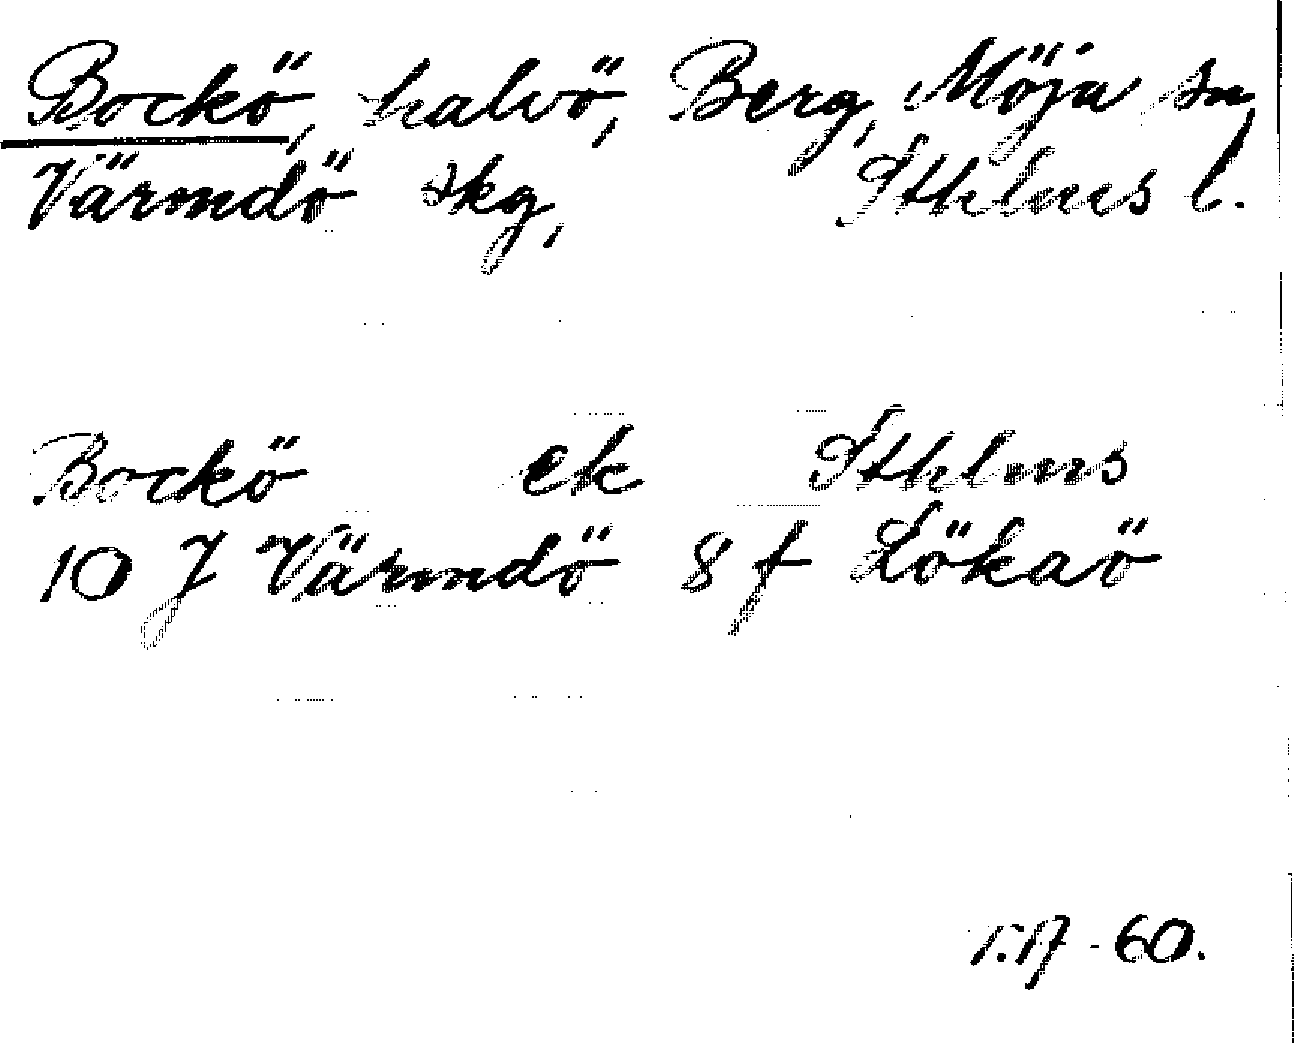 Bockö, halvö, Berg, Möja sn,
Värmdö skg, Sthlms l.
Bockö ek Sthlms
10 J Värmdö 8 f Lökaö
-60.